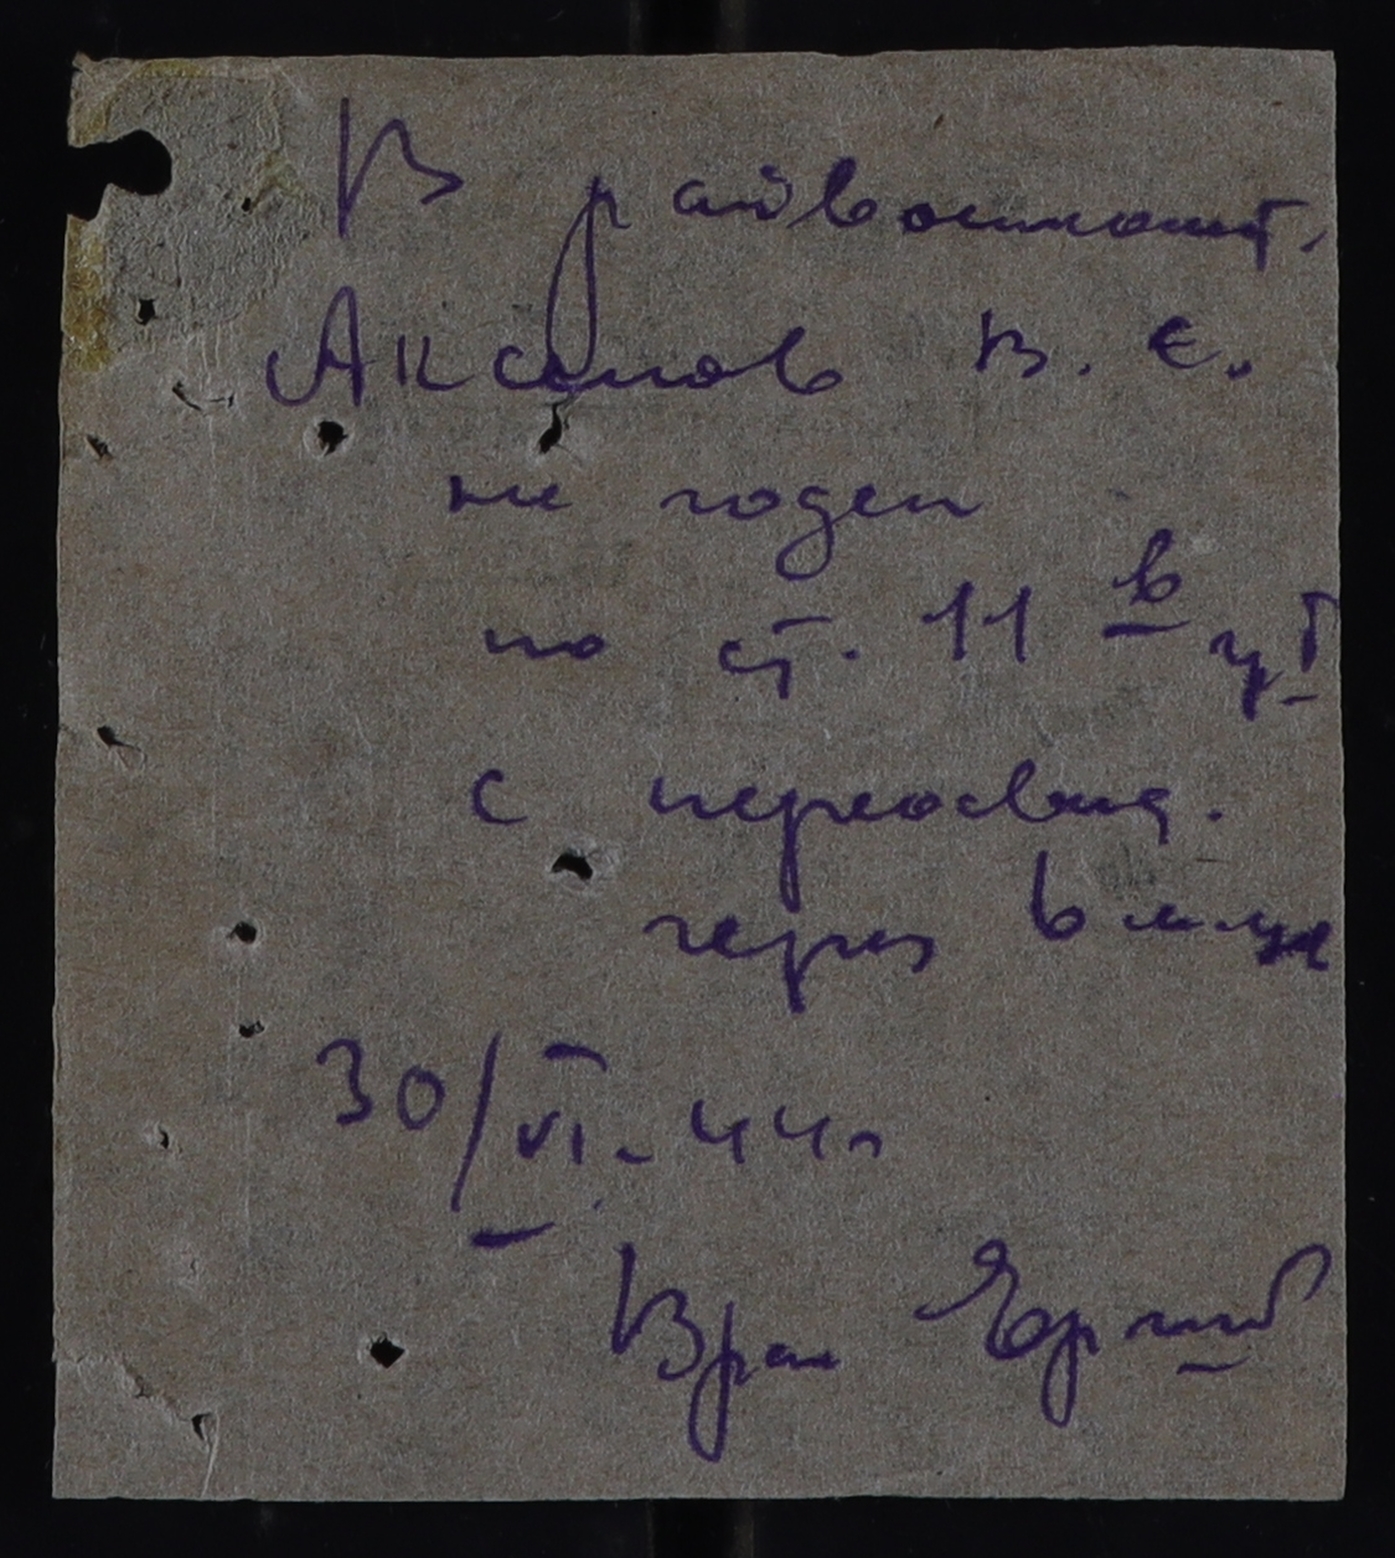 В райвоенкомат.
Аксанов В. Е.
не годен
по ст. 11 в
с переосвид.
через 6 м-це
30/VI - 44 г
Врач